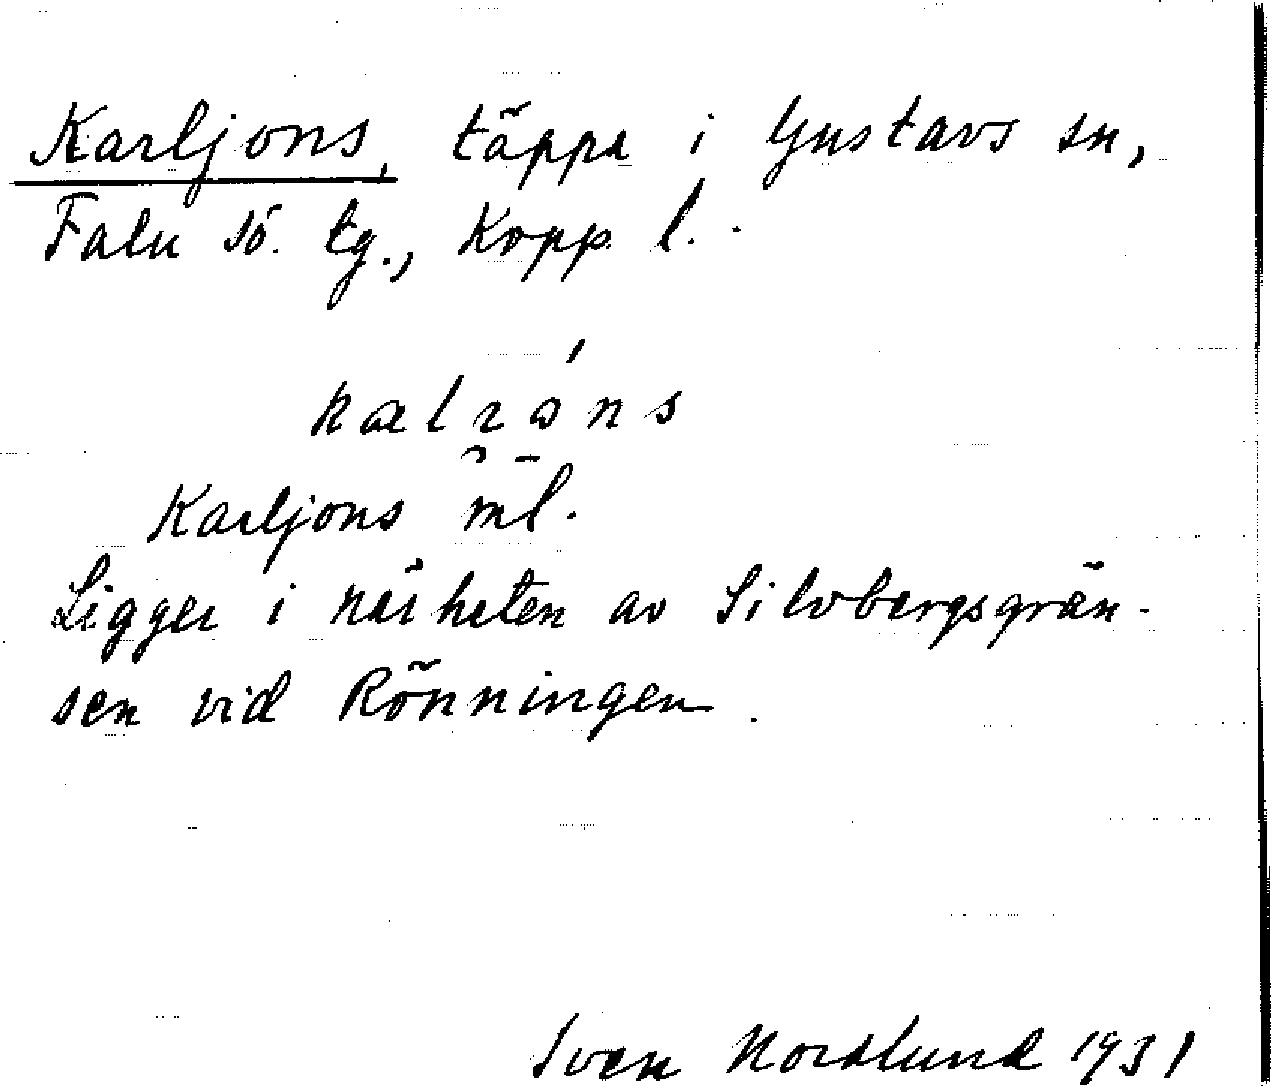 Karljons, täppa i Gustavs sn,
Falu sö. tg., Kopp. l.
kalråns
Karljons ml.
Ligger i närheten av Silvbergsgrän-
sen vid Rönningen.
Sven Nordlund 1931